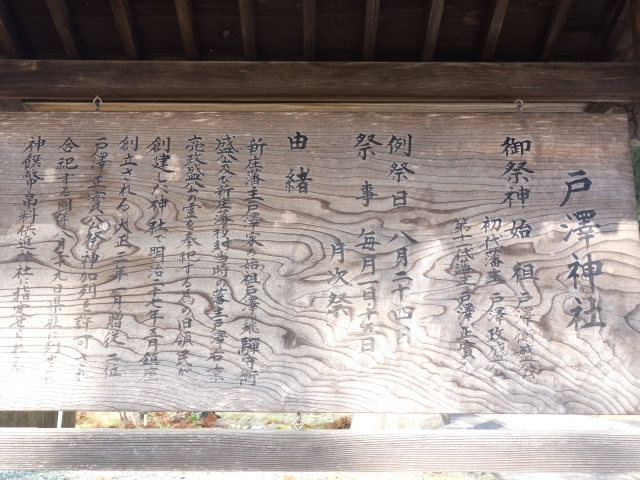 戸澤神社
御祭神 始祖 戸澤衡盛公
初代藩主 戸澤政盛公
第十一代藩主 戸澤正實公
例祭日 八月二十四日
祭事 毎月一日十五日
月次祭
由緒
新庄藩主戸澤家の始祖戸澤飛驒守衡
盛公及び新庄移封当時の藩主戸澤右京
亮政盛公の霊を奉祀する為の旧領民が
創建した神社で明治二十七年五月鎮座
創立される 大正二年一月贈従三位
戸澤正實公の祭神加列を許可され
合祀する 同年 月十九日県社に列せられ
神饌幣帛料供進神社に指定せられた